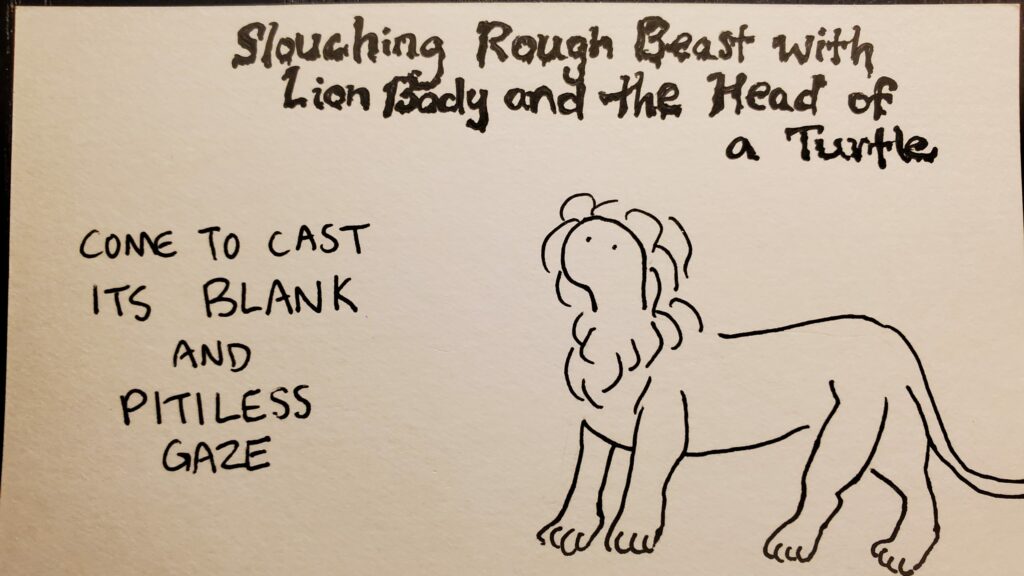 Slouching Rough Beast with
Lion Body and the Head of
a Turtle
COME TO CAST
ITS BLANK
AND
PITILESS
GAZE